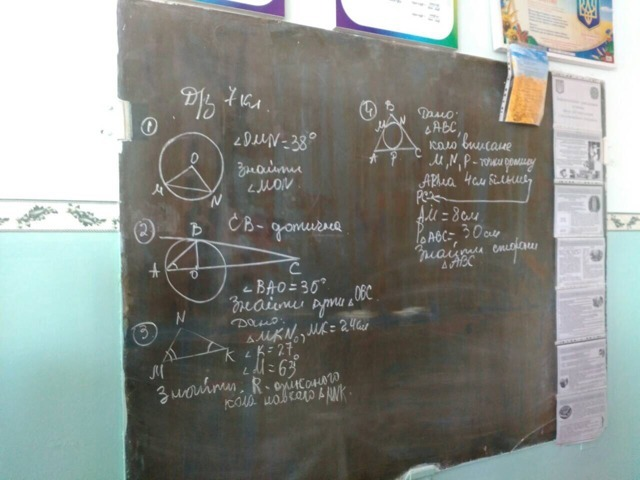 Д/з 7 кл.
1
∠OMN = 38°
Знайти
∠MON
O
M
N
2
B
CB - дотична
A
O
C
∠BAO = 35°
Знайти кути ∠OBC.
3
N
M
K
Дано:
△MKN, MK = 2,4 см
∠K = 27°
∠M = 63°
Знайти: R - описаного
кола навколо △MNK.
4
B
M
N
A
P
C
Дано:
△ABC,
коло вписане
M, N, P - точки дотику
AP на 4 см більше
PC
AM = 8 см
P△ABC = 30 см
Знайти сторони
△ABC